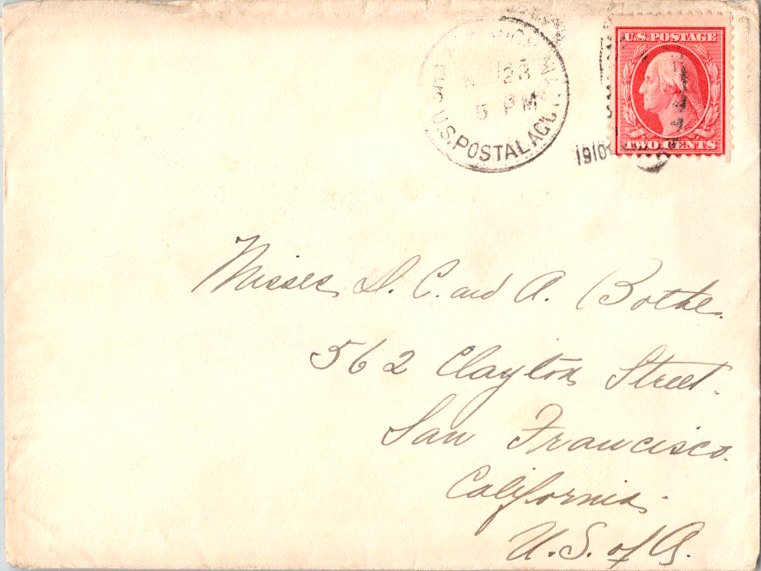 U.S. POSTAGE
23
5 PM
U.S. POSTAL AGCY
1910
TWO CENTS
Misses D. C. and A. Bothe.
562 Clayton Street.
San Francisco.
California.
U.S. of A.